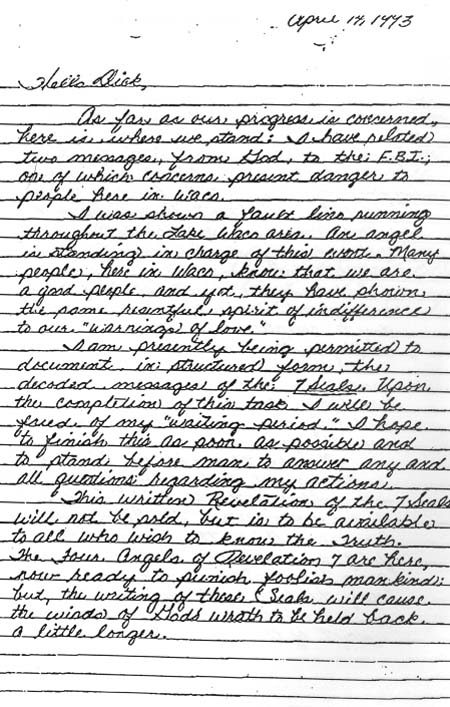 April 14, 1993
Hello Dick,
As far as our progress is concerned,
here is where we stand: I have related
two messages, from God, to the F.B.I.;
one of which concerns present danger to
people here in Waco.
I was shown a fault line running
throughout the Lake Waco area. An angel
is standing in charge of this event. Many
people, here in Waco, know that we are
a good people, and yet, they have shown
the same resentful spirit of indifference
to our "warnings of love."
I am presently being permitted to
document, in structured form, the
decoded messages of the 7 Seals. Upon
the completion of this task, I will be
freed of my "waiting period." I hope
to finish this as soon as possible and
to stand before man to answer any and
all questions regarding my actions.
This written Revelation of the 7 Seals
will not be sold, but is to be available
to all who wish to know the Truth.
The Four Angels of Revelation 7 are here,
now ready to punish foolish mankind;
but, the writing of these Seals will cause
the winds of Gods wrath to be held back
a little longer.